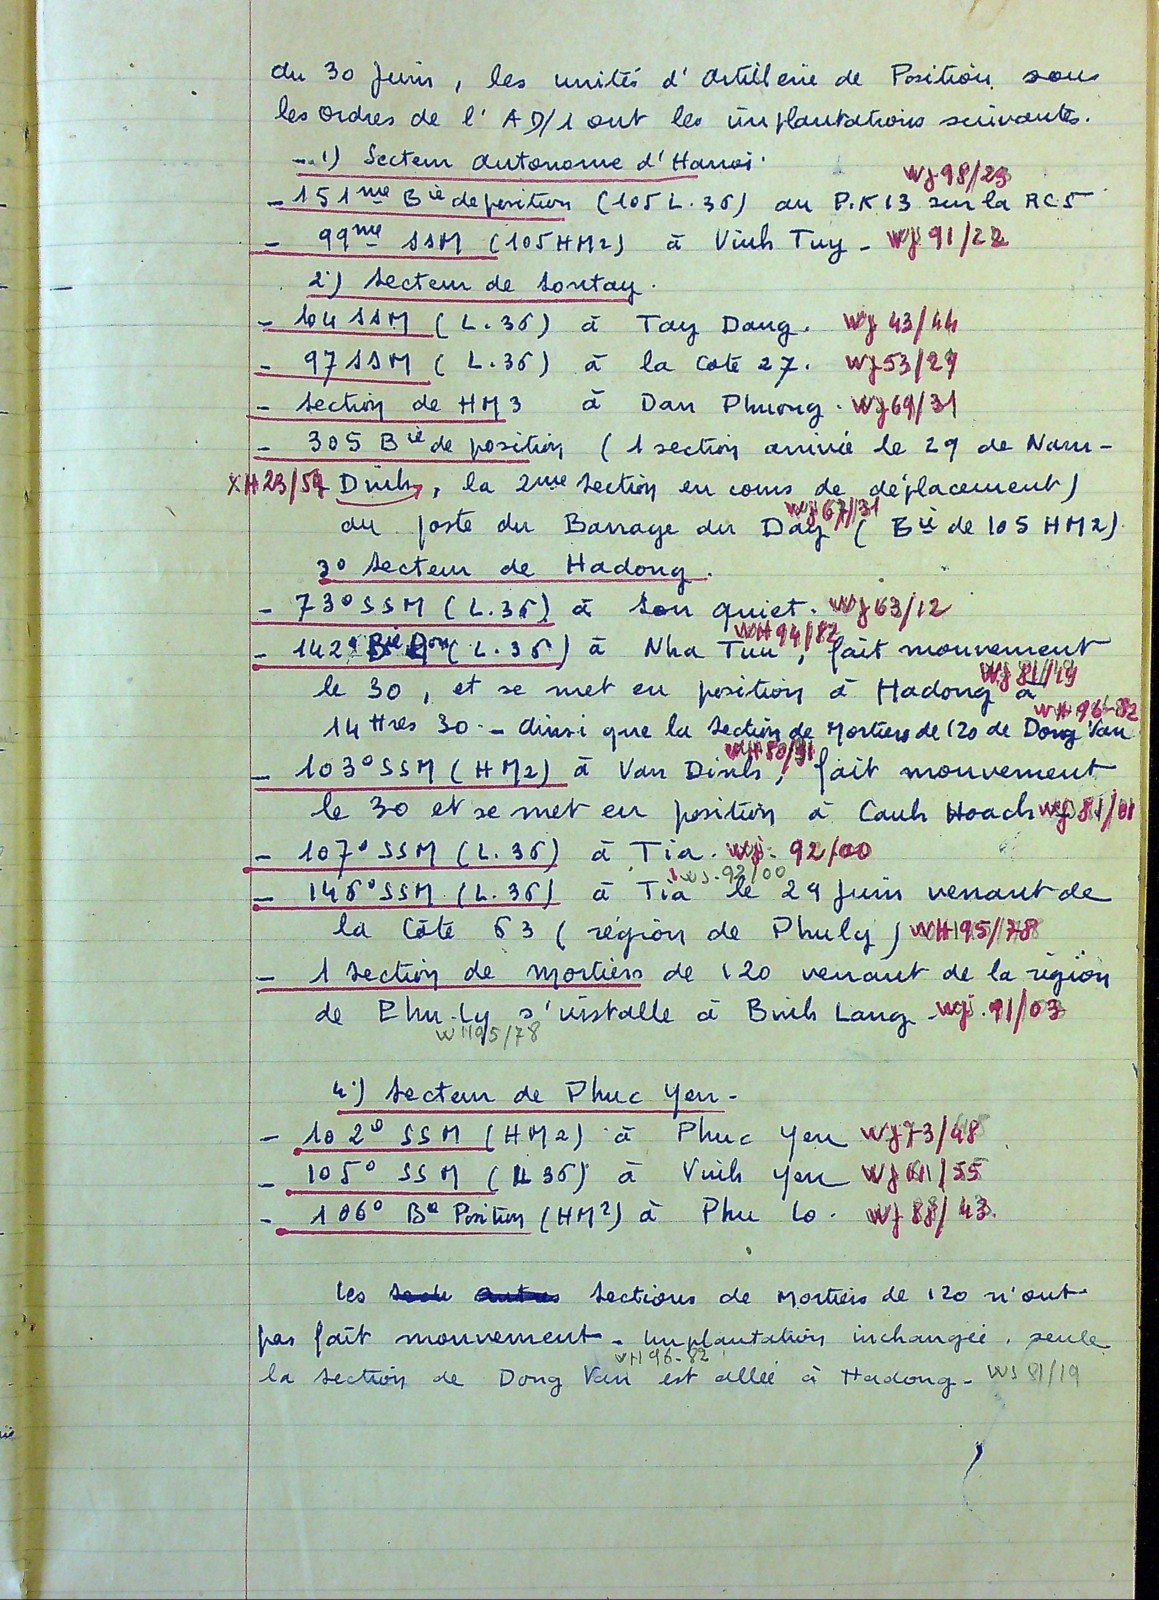 du 30 Juin, les unités d'Artillerie de Position sous
les ordres de l'AD/1 ont les implantations suivantes.
1°) Secteur autonome d'Hanoi.
WJ 98/23
- 151me Bie de position (105 L.36) au P.K 13 sur la RC5
- 99me SSM (105 HM2) à Vinh Tuy - WJ 91/22
2°) Secteur de Sontay.
- 104 SSM (L.36) à Tay Dang. WJ 43/44
- 97 SSM (L.36) à la Cote 27. WJ 53/27
- Section de HM3 à Dan Phuong. WJ 69/31
- 305 Bie de position (1 section arrivée le 29 de Nam-
XH 23/54 Dinh, la 2me Section en cours de déplacement)
WJ 67/31
au poste du Barrage du Day (Bie de 105 HM2)
3° Secteur de Hadong.
- 73° SSM (L.36) à Son quiet. WJ 63/12
WH 94/82
- 142° Bie Pon (L.36) à Nha Tuu, fait mouvement
WJ 81/19
le 30, et se met en position à Hadong à
WH 96-82
14 Hres 30 - Ainsi que la Section de Mortiers de 120 de Dong Van
WH 80/91
- 103° SSM (HM2) à Van Dinh, fait mouvement
le 30 et se met en position à Canh Hoach WJ 81/01
- 107° SSM (L.36) à Tia. WJ. 92/00
WJ. 92/00
- 146° SSM (L.36) à Tia le 29 Juin venant de
la Côte 63 (région de Phuly) WH 95/78
- 1 Section de mortiers de 120 venant de la région
de Phu-Ly s'installe à Binh Lang - WJ. 91/03
WH95/78
4°) Secteur de Phuc Yen -
- 102° SSM (HM2) à Phuc Yen WJ 73/48
- 105° SSM (L 36) à Vinh Yen WJ 61/55
- 106° Bie Position (HM2) à Phu Lo. WJ 88/43.
Les Secte autres Sections de Mortiers de 120 n'ont
pas fait mouvement - Implantation inchangée. seule
WH 96-82
la section de Dong Van est allée à Hadong - WJ 81/19